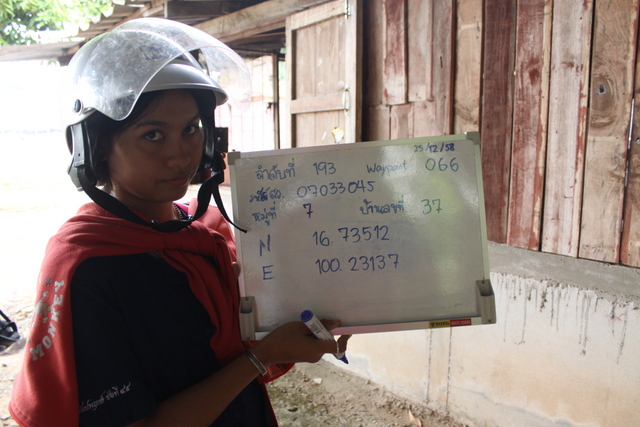 25/12/58
ลำดับที่ 193 Waypoint 066
07033045
หมู่ที่ 7 บ้านเลขที่ 37
N 16.73512
E 100.23137
MONKEY